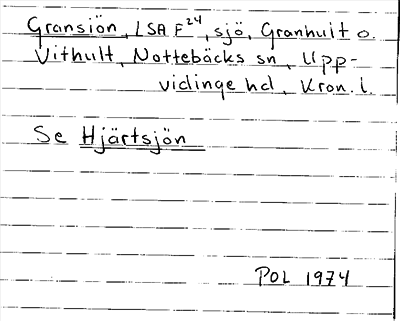 Gransiön, LSA F24, sjö, Granhult o.
Vithult, Nottebäcks sn, Upp-
vidinge hd, Kron. l.
Se Hjärtsjön
POL 1974